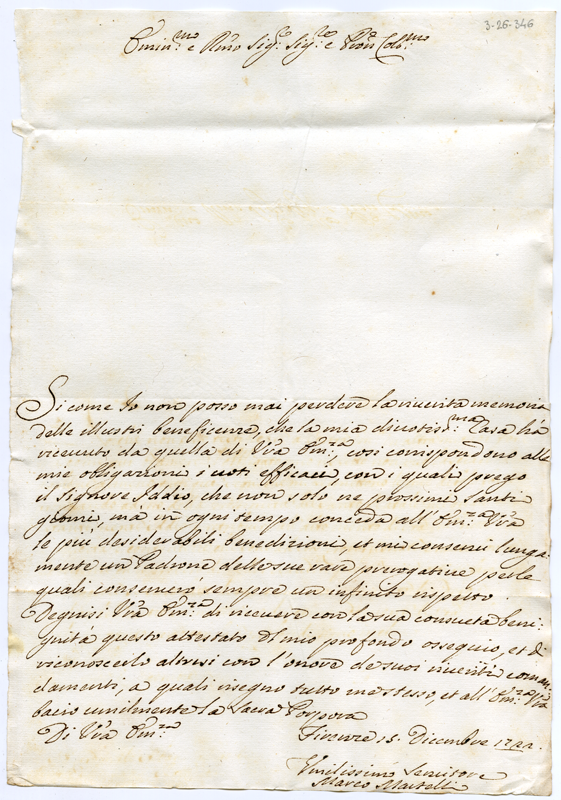 3-26-346
Emin:mo e Rmo Sig:e Sig:e e Pron Col:mo
Si come Io non posso mai perdere la riverita memoria
delle illustri beneficenze, che la mia divotis:ma Casa há
ricevuto da quella di Vra Em:za, cosi corrispondono alle
mie obligazioni i voti efficaci, con i quali prego
il Signore Iddio, che non solo ne prossimi santi
giorni, ma in ogni tempo conceda all' Em:za Vra
le più desiderabili benedizioni, et mi conservi lunga
mente un Padrone delle sue rare prerogative per le
quali conserveró sempre un infinito rispetto.
Degnisi Vra Em:za di ricevere con la sua consueta beni:
gnita questo attestato dl mio profondo ossequio, et di
riconoscerlo altresi con l'onore de suoi riveriti coman
damenti, a quali rasegno tutto me stesso, et all' Em:za Vra
bacio umilmente la Sacra Porpora
Di Vra Em:za Firenze 15. Dicembre
Umilissimo Servitore
Marco Martelli